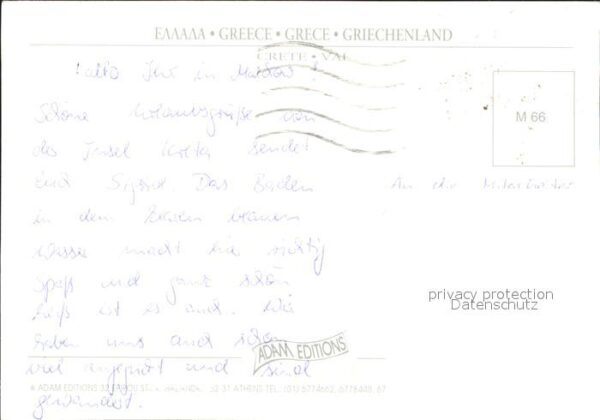 ΕΛΛΑΔΑ • GREECE • GRECE • GRIECHENLAND
CRETE • VAI
Hallo Ihr in
M 66
Schöne Urlaubsgrüße von
der Insel Kreta sendet
Euch Sigrid. Das Baden
An die Mitarbeiter
in dem
Wasser macht hier richtig
Spaß und ganz schön
heiß ist es auch. Wir
haben uns auch schon
viel angehört und sind
gewandert.
privacy protection
Datenschutz
ADAM EDITIONS
ADAM EDITIONS 32 ST. 32-31 ATHENS TEL.: (01)